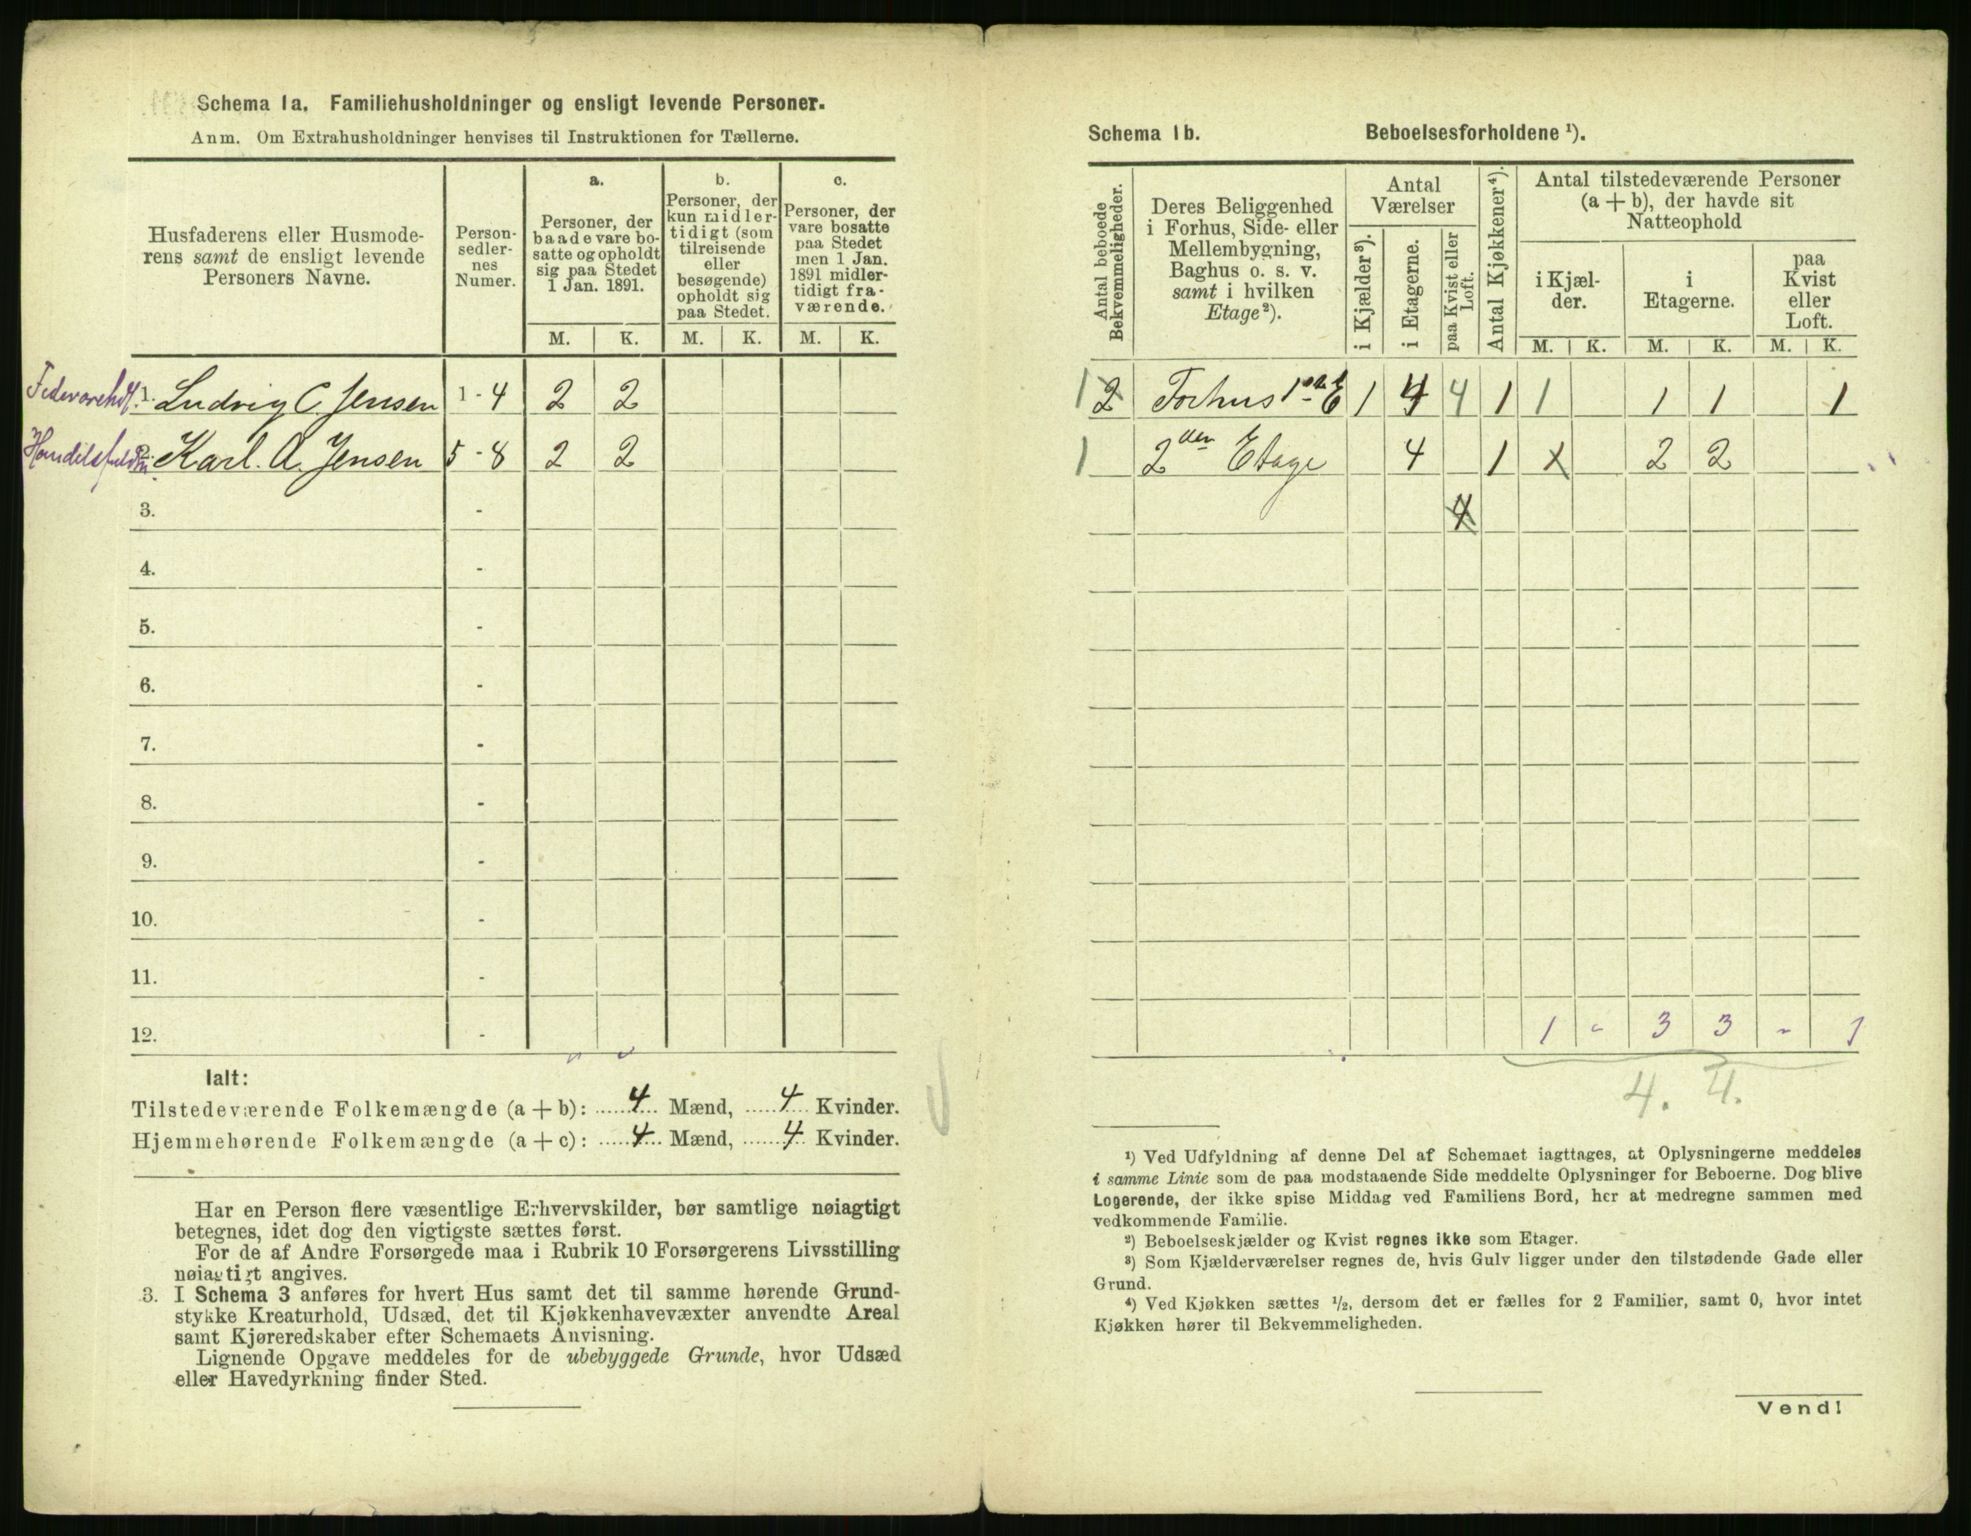 Schema 1a. Familiehusholdninger og ensligt levende Personer.
Anm. Om Extrahusholdninger henvises til Instruktionen for Tællerne.
Husfaderens eller Husmoderens samt de ensligt levende Personers Navne.
Person-
sedler-
nes
Numer.
a.
Personer, der
baade vare bo-
satte og opholdt
sig paa Stedet
1 Jan. 1891.
b.
Personer, der
kun midler-
tidigt (som
tilreisende
eller
besøgende)
opholdt sig
paa Stedet.
c.
Personer, der
vare bosatte
paa Stedet
men 1 Jan.
1891 midler-
tidigt fra-
værende.
M. K. M. K. M. K.
1. Ludvig C. Jensen 1 - 4 2 2
2. Karl. A. Jensen 5 - 8 2 2
3. -
4. -
5. -
6. -
7. -
8. -
9. -
10. -
11. -
12. -
Ialt:
Tilstedeværende Folkemængde (a + b): 4 Mænd, 4 Kvinder.
Hjemmehørende Folkemængde (a + c): 4 Mænd, 4 Kvinder.
Har en Person flere væsentlige Erhvervskilder, bør samtlige nøiagtigt
betegnes, idet dog den vigtigste sættes først.
For de af Andre Forsørgede maa i Rubrik 10 Forsørgerens Livsstilling
nøiagtigt angives.
3. I Schema 3 anføres for hvert Hus samt det til samme hørende Grund-
stykke Kreaturhold, Udsæd, det til Kjøkkenhavevæxter anvendte Areal
samt Kjøreredskaber efter Schemaets Anvisning.
Lignende Opgave meddeles for de ubebyggede Grunde, hvor Udsæd
eller Havedyrkning finder Sted.
Schema 1b. Beboelsesforholdene ¹).
Antal beboede
Bekvemmeligheder.
Deres Beliggenhed
i Forhus, Side- eller
Mellembygning,
Baghus o. s. v.
samt i hvilken
Etage²).
Antal
Værelser
i Kjælder³).
i Etagerne.
paa Kvist eller
Loft.
Antal Kjøkkener⁴).
Antal tilstedeværende Personer
(a + b), der havde sit
Natteophold
i Kjæl-
der.
i
Etagerne.
paa
Kvist
eller
Loft.
M. K. M. K. M. K.
1 2 Forhus 1ste E 1 4 4 1 1 1 1 1
1 2den Etage 4 1 X 2 2
4
1 - 3 3 - 1
4. 4.
¹) Ved Udfyldning af denne Del af Schemaet iagttages, at Oplysningerne meddeles
i samme Linie som de paa modstaaende Side meddelte Oplysninger for Beboerne. Dog blive
Logerende, der ikke spise Middag ved Familiens Bord, her at medregne sammen med
vedkommende Familie.
²) Beboelseskjælder og Kvist regnes ikke som Etager.
³) Som Kjælderværelser regnes de, hvis Gulv ligger under den tilstødende Gade eller
Grund.
⁴) Ved Kjøkken sættes ½, dersom det er fælles for 2 Familier, samt 0, hvor intet
Kjøkken hører til Bekvemmeligheden.
Vend!